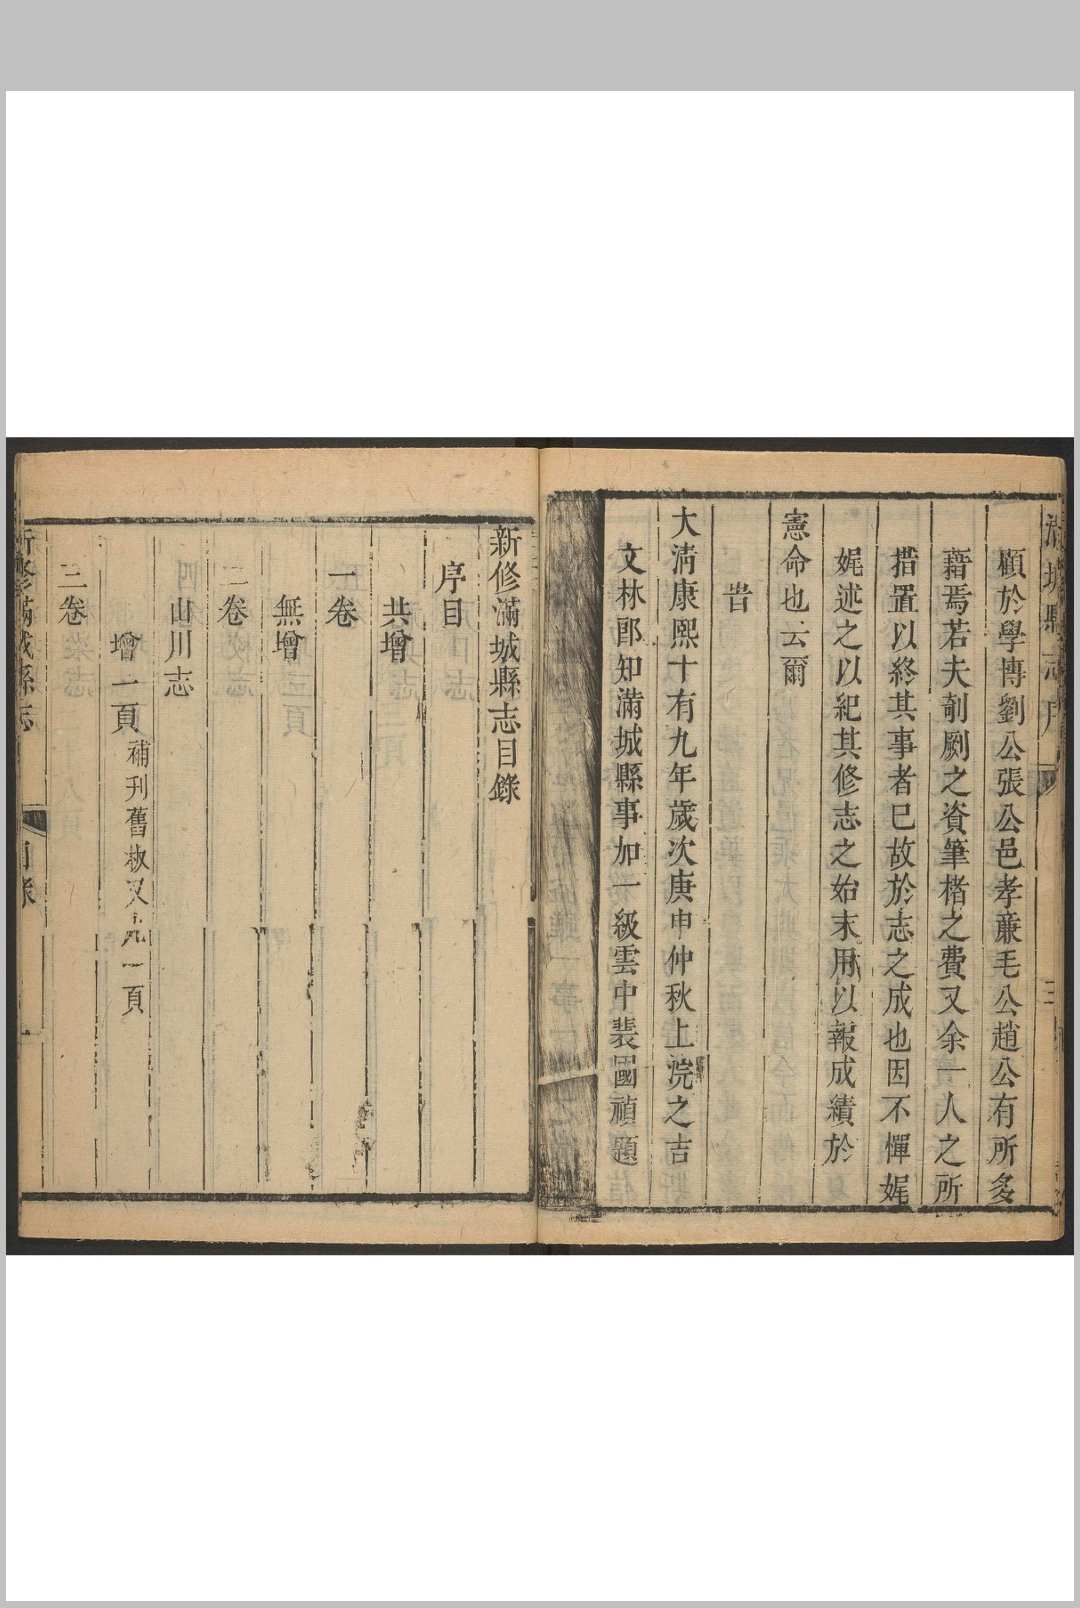 滿城縣志序
三
顧於學博劉公張公邑孝亷毛公趙公有所多
藉焉若夫剞劂之資筆楮之費又余一人之所
措置以終其事者巳故於志之成也因不憚娓
娓述之以紀其修志之始末用以報成績於
憲命也云爾
旹
大清康熙十有九年歲次庚申仲秋上浣之吉
文林郎知滿城縣事加一級雲中裴國禎題
新修滿城縣志目錄
序目
共增
一卷
無增
二卷
山川志
增一頁補刊舊板又九一頁
三卷
新修滿城縣志
目錄
一